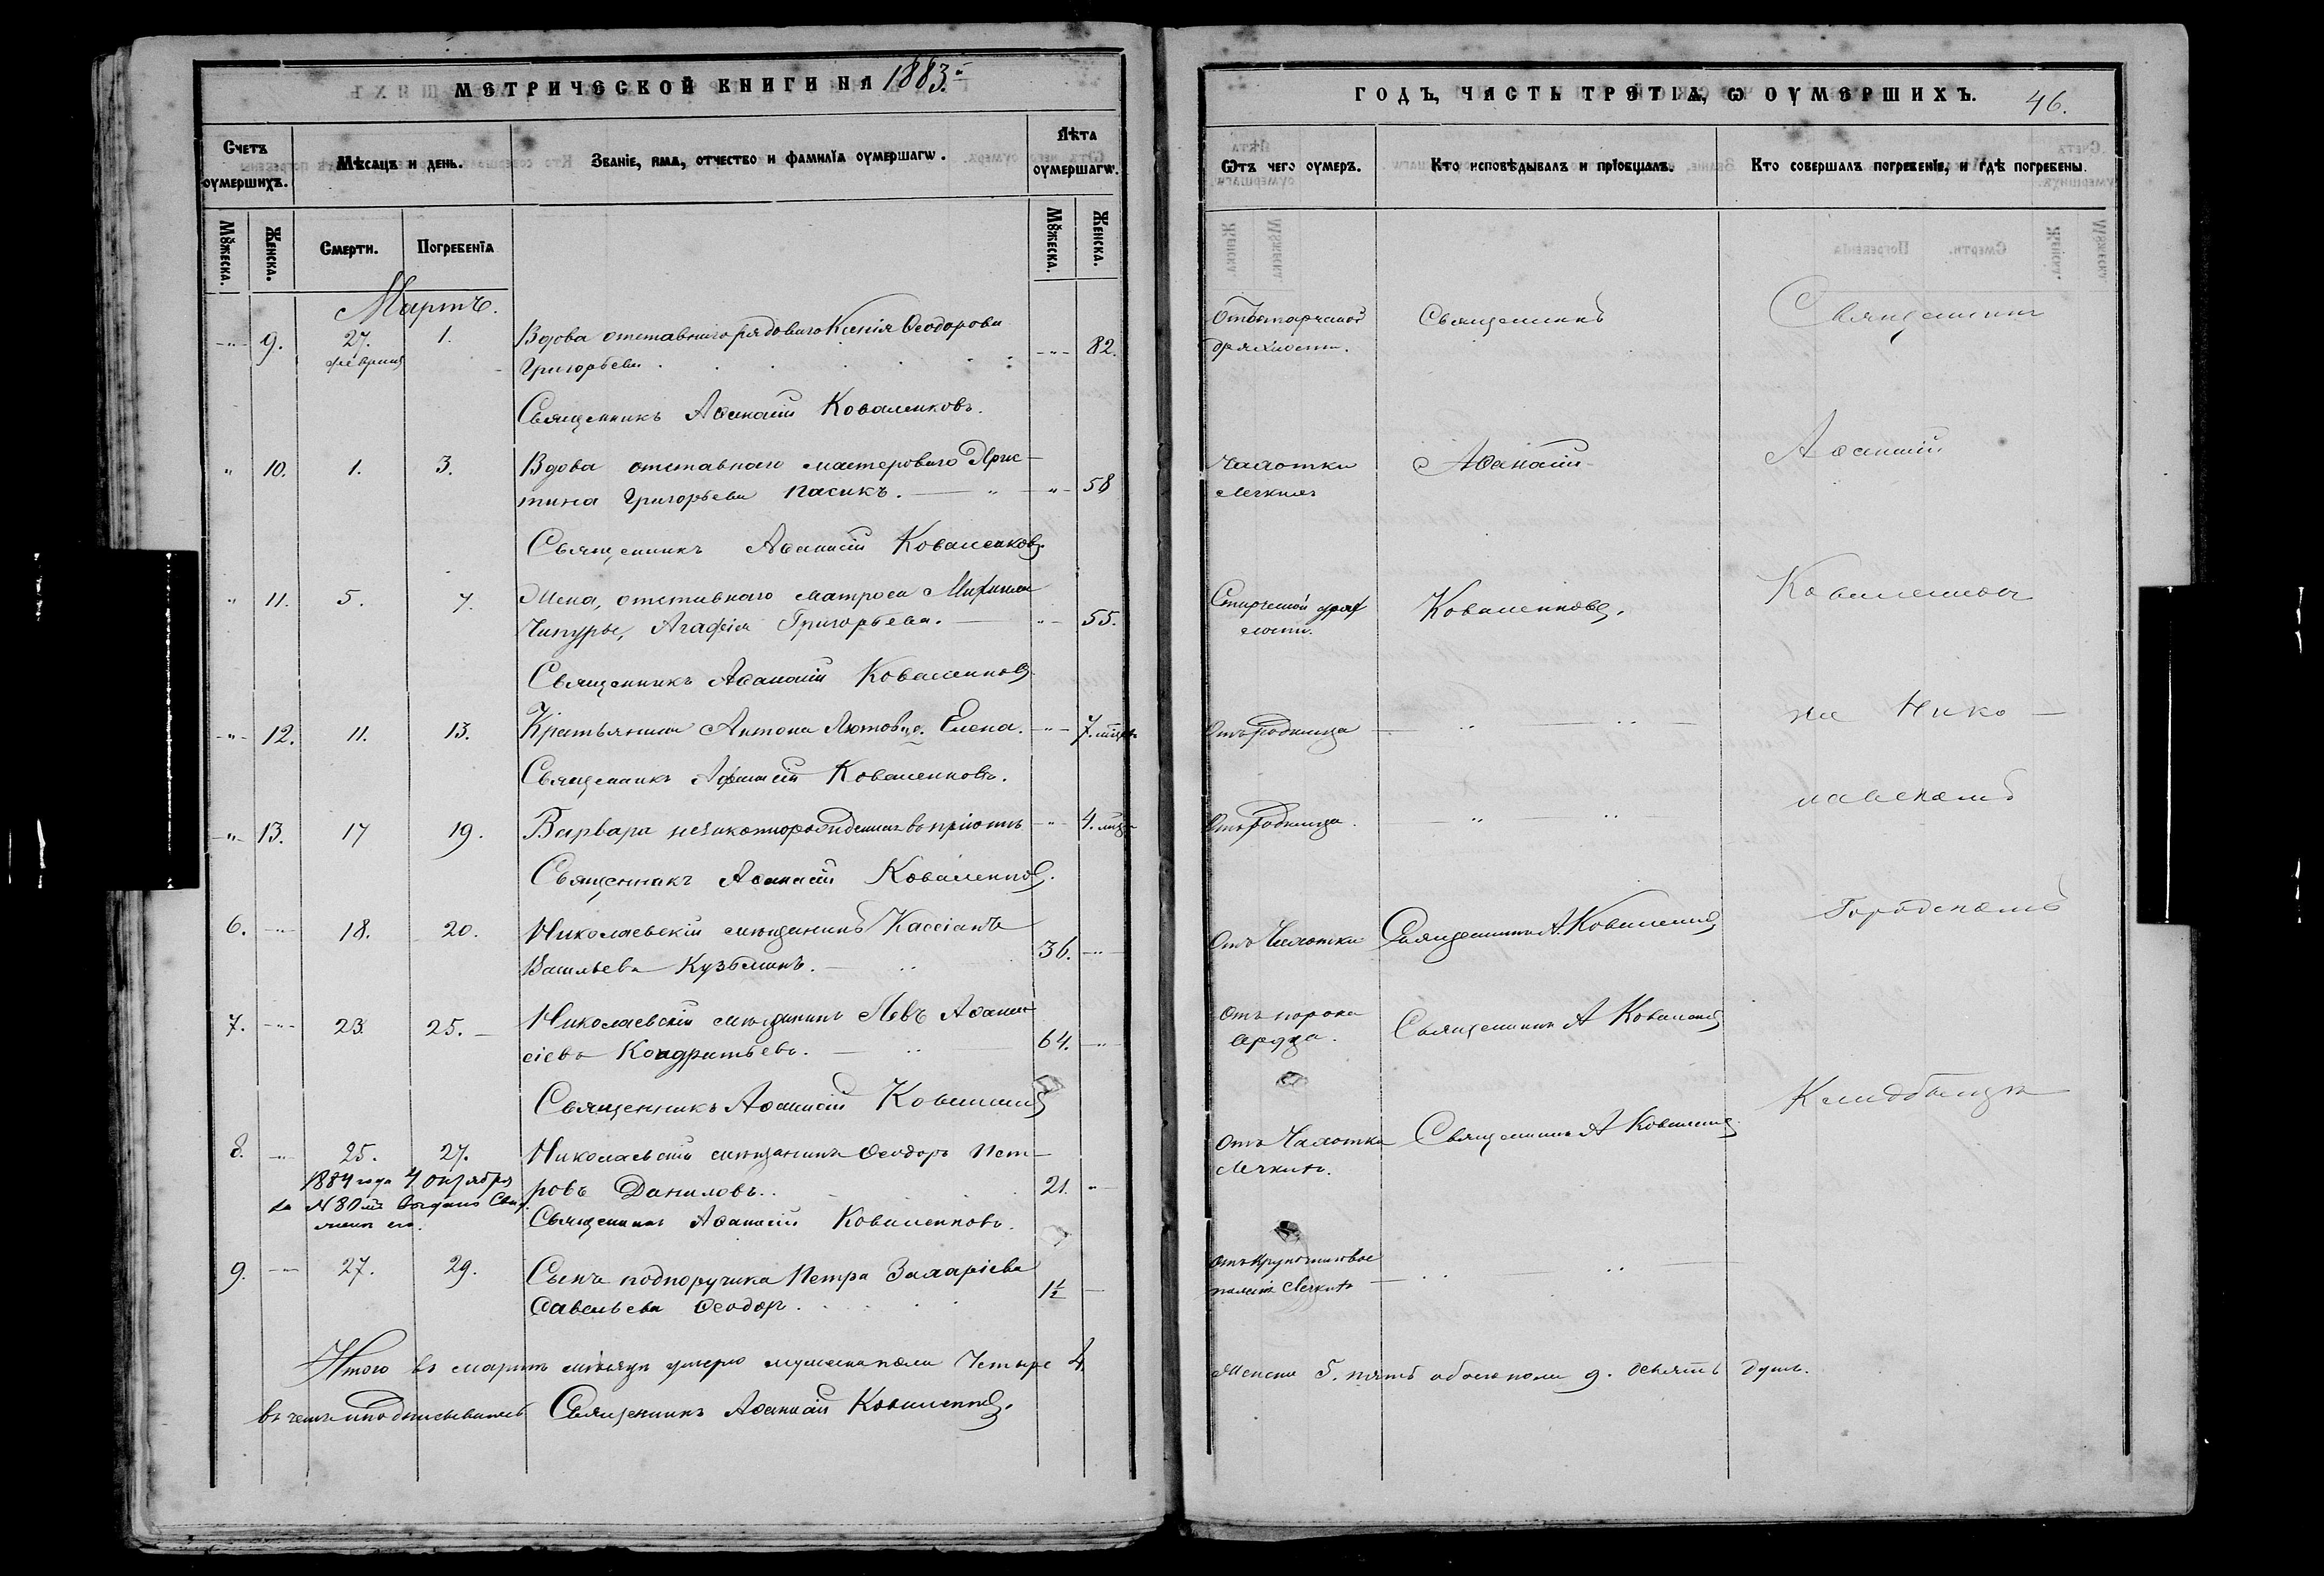 МЕТРИЧЕСКОЙ КНИГИ НА 1883.й
Счетъ оумершихъ.
Мѣсяцъ и день.
Званіе, имя, отчество и фамилія оумершагѡ.
Лѣта оумершагѡ.
Мꙋжеска.
Женска.
Смерти.
Погребенїя
Мꙋжеска.
Женска.
Мартъ.
9. 27. февраля 1. Вдова отставнаго рядоваго Ксенія Ѳеодорова 82.
Григорьева
Священникъ Аѳанасій Коваленковъ.
" 10. 1. 3. Вдова отставнаго мастероваго Хрис-
тина Григорьева Пасикъ. " 58
Священникъ Аѳанасій Коваленковъ.
" 11. 5. 7. Жена, отставнаго матроса
Чипуры, Агафія Григорьева. 55.
Священникъ Аѳанасій Коваленковъ
" 12. 11. 13. Антона Елена. 7.
Священникъ Аѳанасій Коваленковъ.
" 13. 17 19. Варвара 4.
Священникъ Аѳанасій Коваленковъ.
6. 18. 20. Николаевскій мѣщанинъ Кассіанъ
Васильевъ Кузьминъ. 36.
7. 23. 25. Николаевскій мѣщанинъ Левъ Аѳана-
сіевъ Кондратьевъ. 64.
Священникъ Аѳанасій Коваленковъ
8. 25. 27. Николаевскій мѣщанинъ Ѳеодоръ Пет-
1884 года 4 октября ровъ Даниловъ. 21.
за №80мъ выдано
Священникъ Аѳанасій Коваленковъ.
9. 27. 29. Сынъ подпоручика Петра Захаріева
Савельева Ѳеодоръ. 1½
Итого въ мартѣ мѣсяцѣ умерло мужеска пола четыре 4.
въ чемъ и подписываюсь Священникъ Аѳанасій Коваленковъ.
ГОДЪ, ЧАСТЬ ТРЕТІѦ, Ѡ ОУМЕРШИХЪ. 46.
Ѿтъ чего оумеръ.
Кто исповѣдывалъ и прїобщалъ.
Кто совершалъ погребенїе, и гдѣ погребены.
Отъ старческой Священникъ Священникъ
дряхлости.
Чахотки Аѳанасій Аѳанасій
легкихъ
Старческой дрях Коваленковъ. Коваленковъ
лости.
Отъ родимца на Нико-
Отъ родимца лаевскомъ
Отъ Чахотки Священникъ А. Коваленковъ Городскомъ
Отъ порока Священникъ А Коваленковъ
сердца.
Кладбищѣ
Отъ Чахотки Священникъ А Коваленковъ
легкихъ.
легкихъ
Женска 5. пять обоего пола 9. девять душъ.